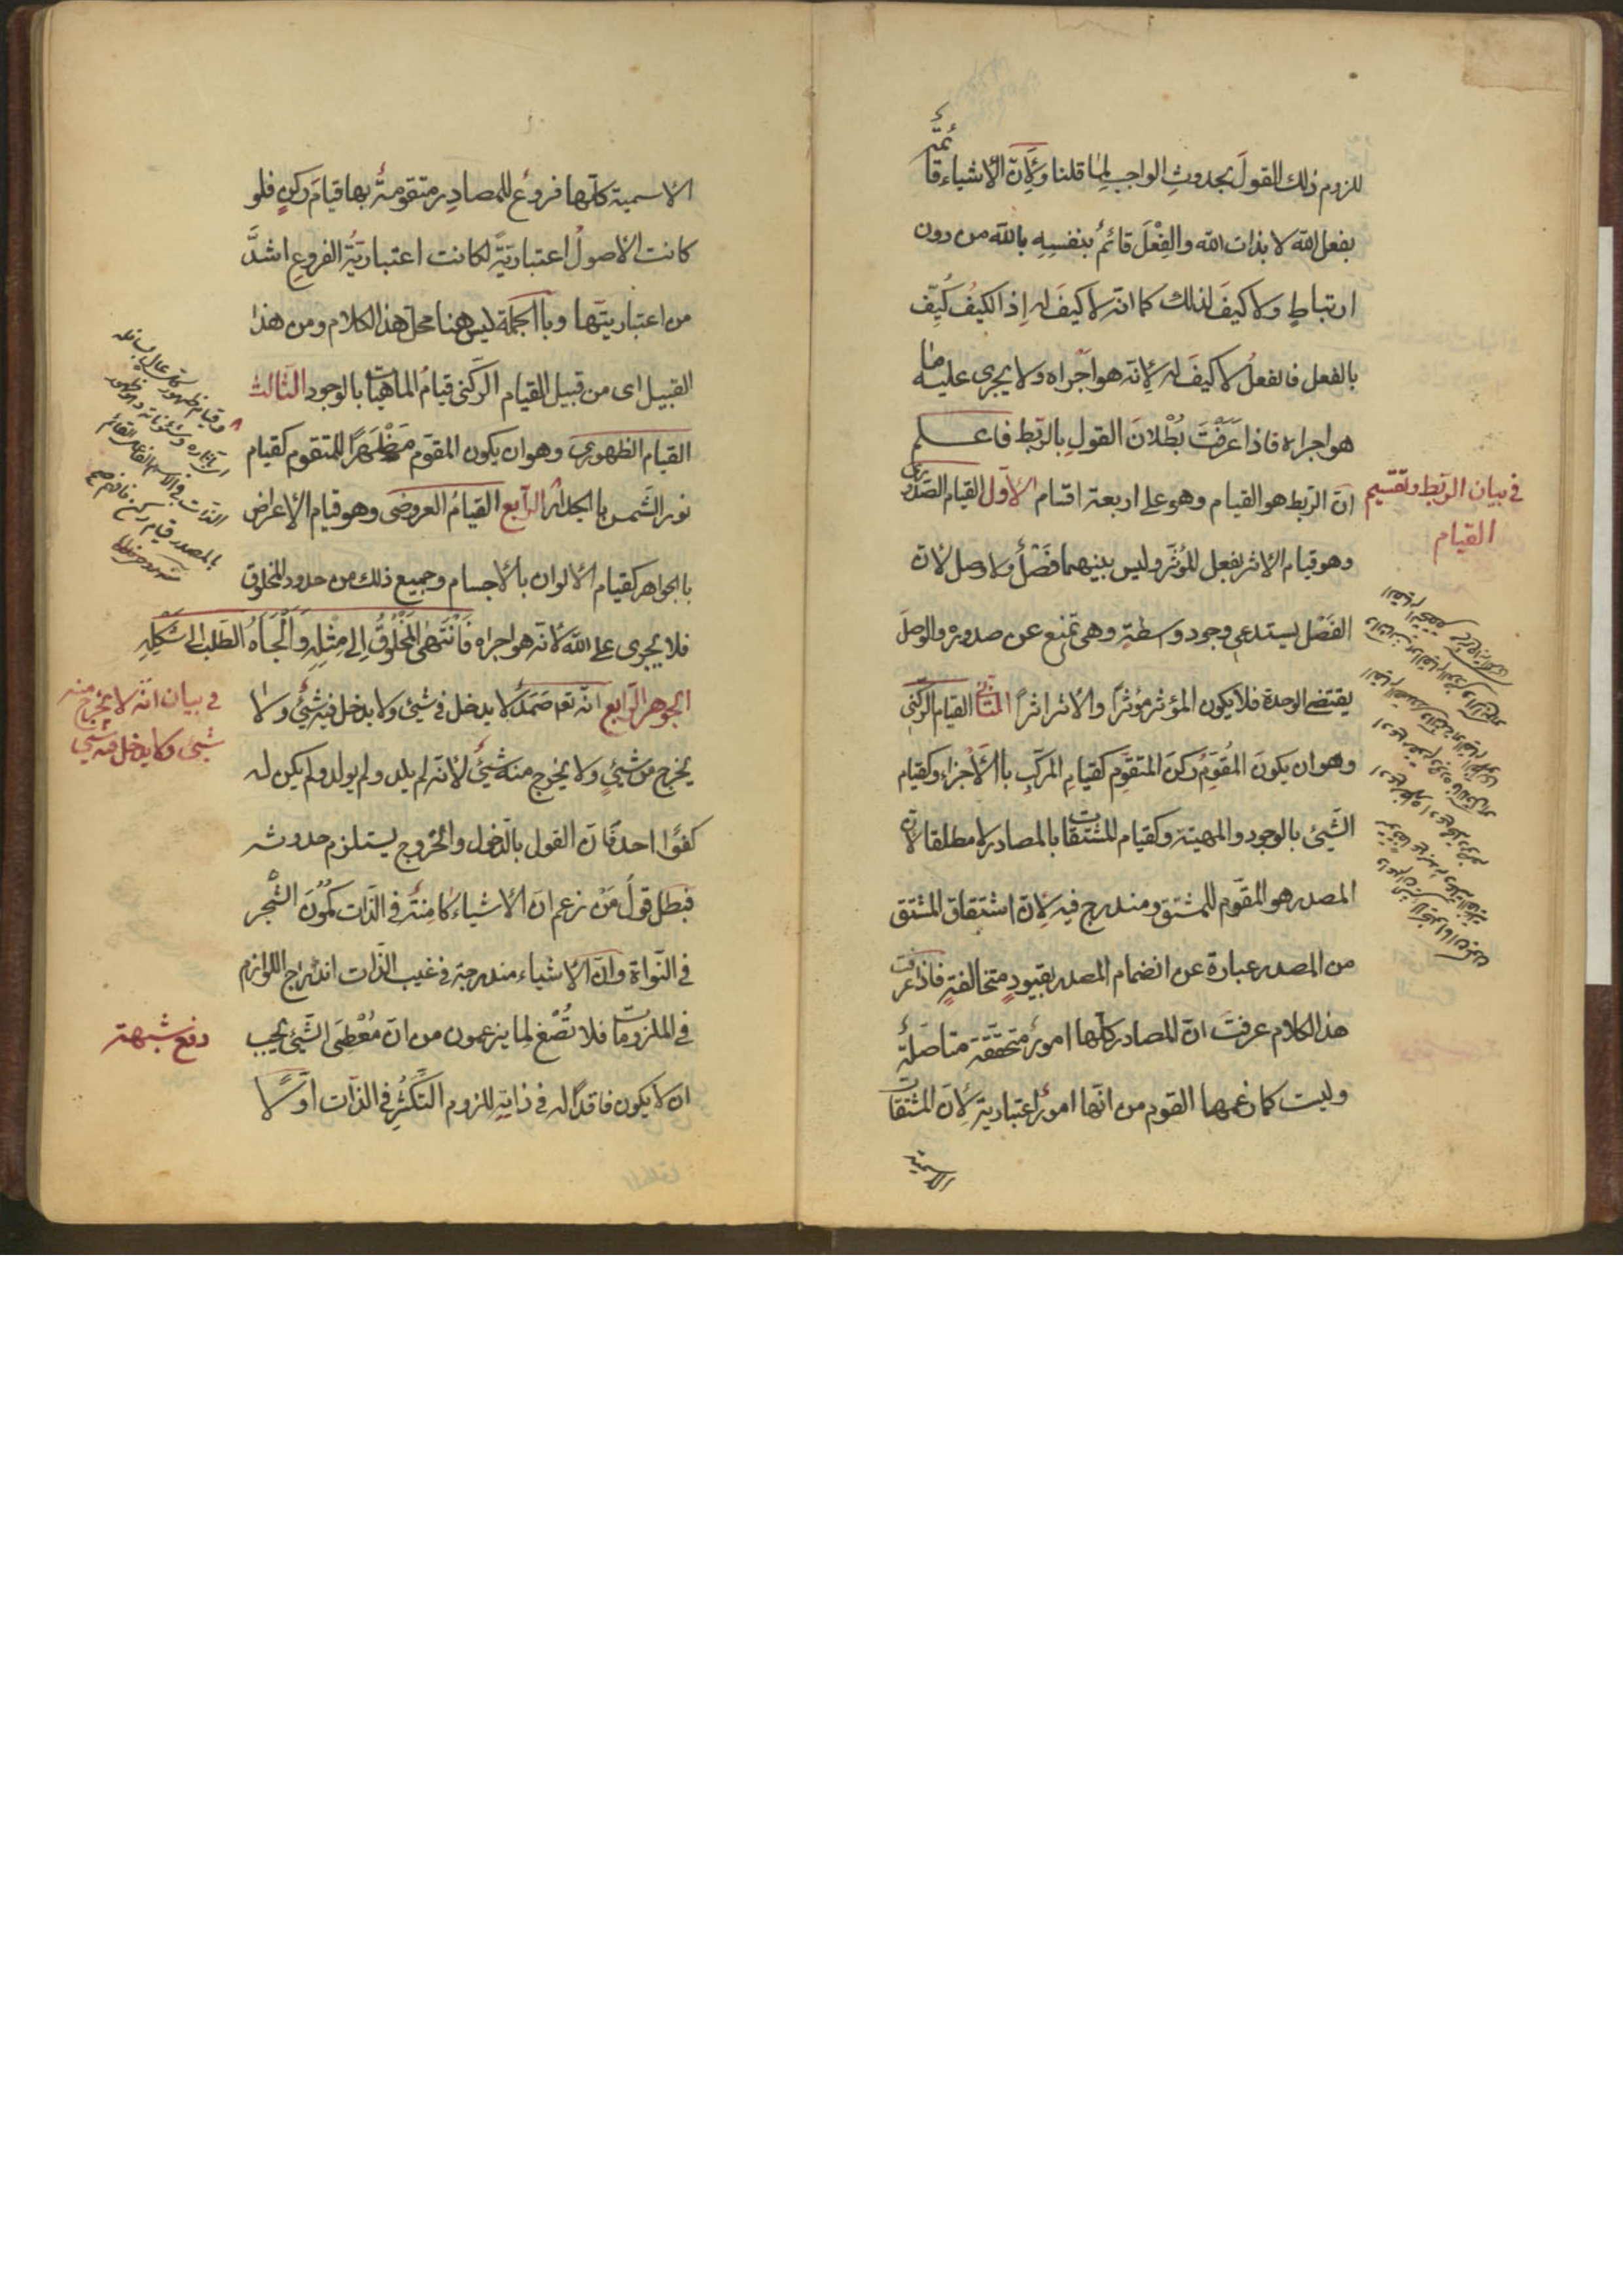 للزوم ذلك القول بحدوث الواجب لما قلنا ولِأنّ الأشياء قائمة
بفعل الله لا بذات الله والفِعْلَ قائمٌ بنفسِهِ بالله من دون
ارتباطٍ ولا كيفَ لذلك كما انّه لا كيفَ له إذ الكيفُ كُيِّفَ
بالفعل فالفعلُ لا كيفَ له لِانّه هو اجْراه ولا يجرى عليه ما
هو اجراه فاذا عَرَفْتَ بُطْلانَ القولِ بالرّبط فاعلم
انّ الرّبط هو القيام وهو على اربعة اقسام الأوّل القيام الصّدورى
في بيان الرّبط وتقسيم
القيام
وهو قيام الاثر بفعل المؤثّر وليس بينهما فَصْلٌ ولا وصل لانّ
الفَصْل يستدعى وجود واسطةٍ وهى تمنع عن صدوره والوصلَ
يقتضى الوحدة فلا يكون المؤثر مؤثرًا والأثر اثرًا الثّانى القيام الرّكنى
وهو ان يكونَ المُقوِّمُ ركنَ المتقوِّم كقيامِ المركّبِ باالأجزاء وكقيام
الشّيئ بالوجود والمهيّة وكقيام المشتقات بالمصادر لا مطلقا لانّ
المصدر هو المقوّم للمشتق ومندرج فيه لِانّ اشتقاق المشتق
من المصدر عبارة عن انضمام المصدر بقيودٍ متخالفةٍ فاذا عرفت
هذا الكلام عرفتَ انّ المصادر كلّها امورٌ متحقّقة متاصّلةٌ
وليست كما زعمها القوم من انّها امورٌ اعتباريّة لِانّ المشتقات
الاسميّة
الأسميّة كلّها فروع للمصادِر متقوّمةٌ بها قيامَ ركنٍ فلو
كانت الأصولُ اعتباريّةً لكانت اعتباريّةُ الفروعِ اشدَّ
من اعتباريّتها وباالجملة ليس هنا محلّ هذا الكلام ومن هذا
القبيل اى من قبيل القيام الرّكنى قيامُ الماهيّات بالوجود الثّالث
القيام الظهورى وهو ان يكون المقوّم مَظْهَرًا للمتقوم كقيام
نور الشّمس باالجدار الرّابع القيامُ العروضى وهو قيام الأعراض
باالجواهر كقيام الألوان بالأجسام وجميع ذلك من حدود المخلوق
فلا يجرى على الله لأنّه هو اجراه فَانْتَهَى المَخْلُوقُ إلى مِثْلِهِ وَاَلْجَأَهُ الطّلب الى شَكْلِهِ
الجوهر الرّابع انّه تعٰ صَمَدٌ لا يدخل في شيئ ولا يدخل فيه شيئٌ ولا
في بيان انّه لا يخرج منه
شيئ ولا يدخل فيه شيئ
يخرج من شيئٍ ولا يخرج منه شيئٌ لأنّه لم يلد ولم يولد ولم يكن له
كفوًا احد فانّ القول بالدّخول والخروج يستلزم حدوثه
فبطل قولُ مَنْ زعم انّ الأشياء كامِنَةٌ في الذّات كُمُونَ الشّجر
في النّواة وانّ الأشياء مندرجة في غيب الذّات اندراج اللوازم
في الملزومات فلا تُصْغ لِما يزعمون من انّ مُعْطِىَ الشّيئ يجب
دفع شبهة
ان لا يكون فاقدًا له في ذاتِهِ للزوم التّكثّرِ في الذّات اوّلًا